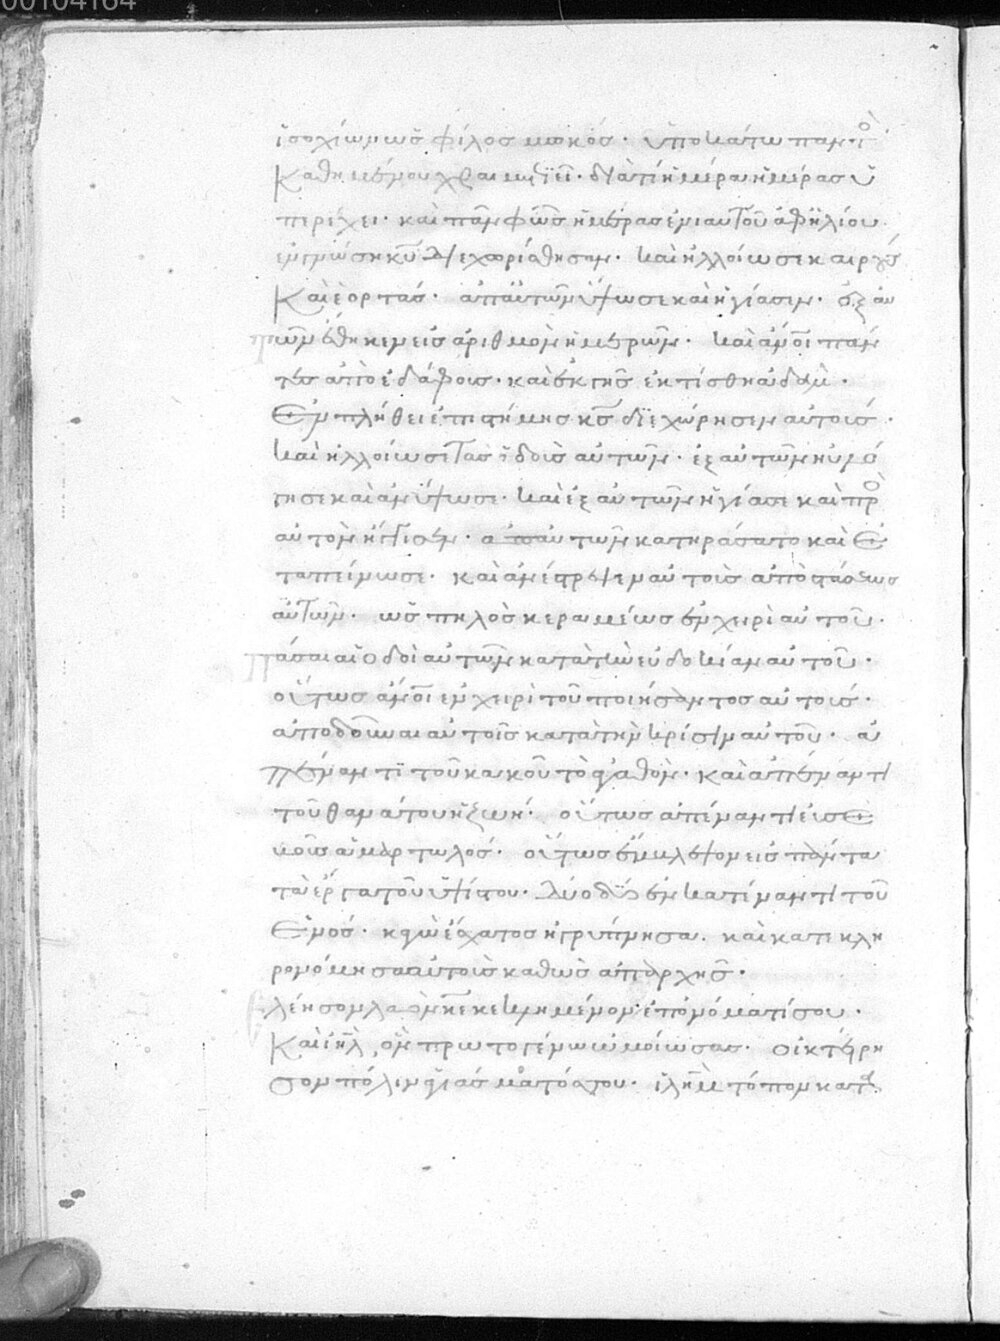 ἰσοχίων ὡς φίλος μωκός· ὑποκάτω παντὸ
Καθημένου χρεμετίζει· διατί ἡμέρα ἡμέρας ὑ
περέχει· καὶ πᾶν φῶς ἡμέρας ἐνιαυτοῦ ἀφηλίου
ἐν γνώσει κυ διεχωρίσθησαν· καὶ ἠλλοίωσε καιροὺς
Καὶ ἑορτάς· ἀπαὐτῶν ὕψωσε καὶ ἡγίασεν· ἐξ αὐ
τῶν ἔθηκεν εἰς ἀριθμὸν ἡμερῶν· καὶ ἄνοι πάν
τες ἀπὸ ἐδάφους· καὶ ἐκ γῆς ἐκτίσθη ἀδάμ·
Ἐν πλήθει ἐπιστήμης κς διεχώρησεν αὐτούς·
καὶ ἠλλοίωσε τὰς ὁδοὺς αὐτῶν· ἐξ αὐτῶν ηὐλό
γησε καὶ ἀνύψωσε· καὶ ἐξ αὐτῶν ἡγίασε καὶ πρὸ
αὐτὸν ἤγγισεν· ἀπαὐτῶν κατηράσατο καὶ ἐ
ταπείνωσε· καὶ ἀνέστρεψεν αὐτοὺς ἀποστάσεως
αὐτῶν· ὡς πηλὸς κεραμέως ἐν χειρὶ αὐτοῦ·
Πᾶσαι αἱ ὁδοὶ αὐτῶν κατὰ τὴν εὐδοκίαν αὐτοῦ·
οὕτως ἄνοι ἐν χειρὶ τοῦ ποιήσαντος αὐτούς·
ἀποδοῦναι αὐτοῖς κατὰ τὴν κρίσιν αὐτοῦ· ἀ
πέναντι τοῦ κακοῦ τὸ ἀγαθόν· καὶ ἀπέναντι
τοῦ θανάτου ἡ ζωή· οὕτως ἀπέναντι εὐσε
βοῦς ἁμαρτωλός· οὕτως ἔμβλεψον εἰς πάντα
τὰ ἔργα τοῦ ὑψίστου· δύο δύο ἓν κατέναντι τοῦ
Ἑνός· κἀγὼ ἔσχατος ἠγρύπνησα· καὶ κατεκλη
ρονόμησα αὐτοὺς καθὼς ἀπαρχῆς·
Ἐλέησον λαὸν κε κεκλημένον ἐπονόματί σου·
Καὶ ιηλ, ὃν πρωτογένω ὡμοίωσας· οἰκτείρη
σον πόλιν ἁγιάσματός σου· ιλημ τόπον κατα